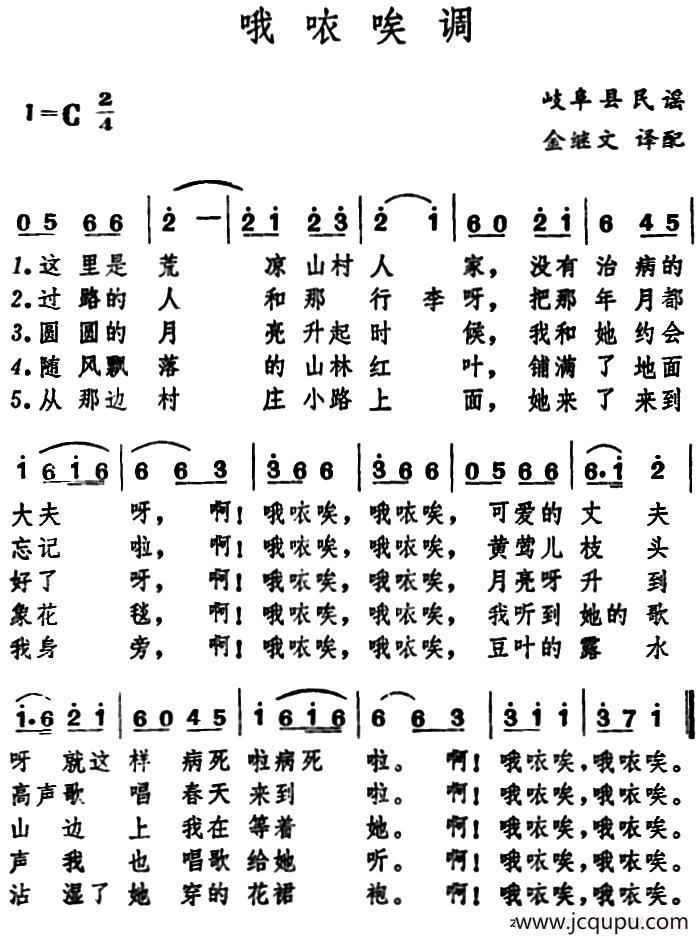 哦㕵唉调
1=C 2/4
岐阜县民谣
金继文 译配
0 5 6 6 | 2̇ — | 2̇ 1̇ 2̇ 3̇ | 2̇ 1̇ | 6 0 2̇ 1̇ | 6 4 5 |
1.这里是 荒 凉山村人 家，没有治病的
2.过路的 人 和那 行李呀，把那年月都
3.圆圆的 月 亮升起时 候，我和她约会
4.随风飘 落 的山林红 叶，铺满了地面
5.从那边 村 庄小路上 面，她来了来到
1̇ 6 1̇ 6 | 6 6 3 | 3̇ 6 6 | 3̇ 6 6 | 0 5 6 6 | 6. 1̇ 2̇ |
大夫 呀，啊！哦㕵唉，哦㕵唉，可爱的丈夫
忘记 啦，啊！哦㕵唉，哦㕵唉，黄莺儿枝头
好了 呀，啊！哦㕵唉，哦㕵唉，月亮呀升到
象花 毯，啊！哦㕵唉，哦㕵唉，我听到她的歌
我身 旁，啊！哦㕵唉，哦㕵唉，豆叶的露水
1̇. 6 2̇ 1̇ | 6 0 4 5 | 1̇ 6 1̇ 6 | 6 6 3 | 3̇ 1̇ 1̇ | 3̇ 7 1̇ ‖
呀 就这样 病死啦病死 啦。啊！哦㕵唉，哦㕵唉。
高声歌 唱 春天来到 啦。啊！哦㕵唉，哦㕵唉。
山 边上我在等着 她。啊！哦㕵唉，哦㕵唉。
声我 也 唱歌给她 听。啊！哦㕵唉，哦㕵唉。
沾 湿了她 穿的花裙 袍。啊！哦㕵唉，哦㕵唉。
www.jcqupu.com